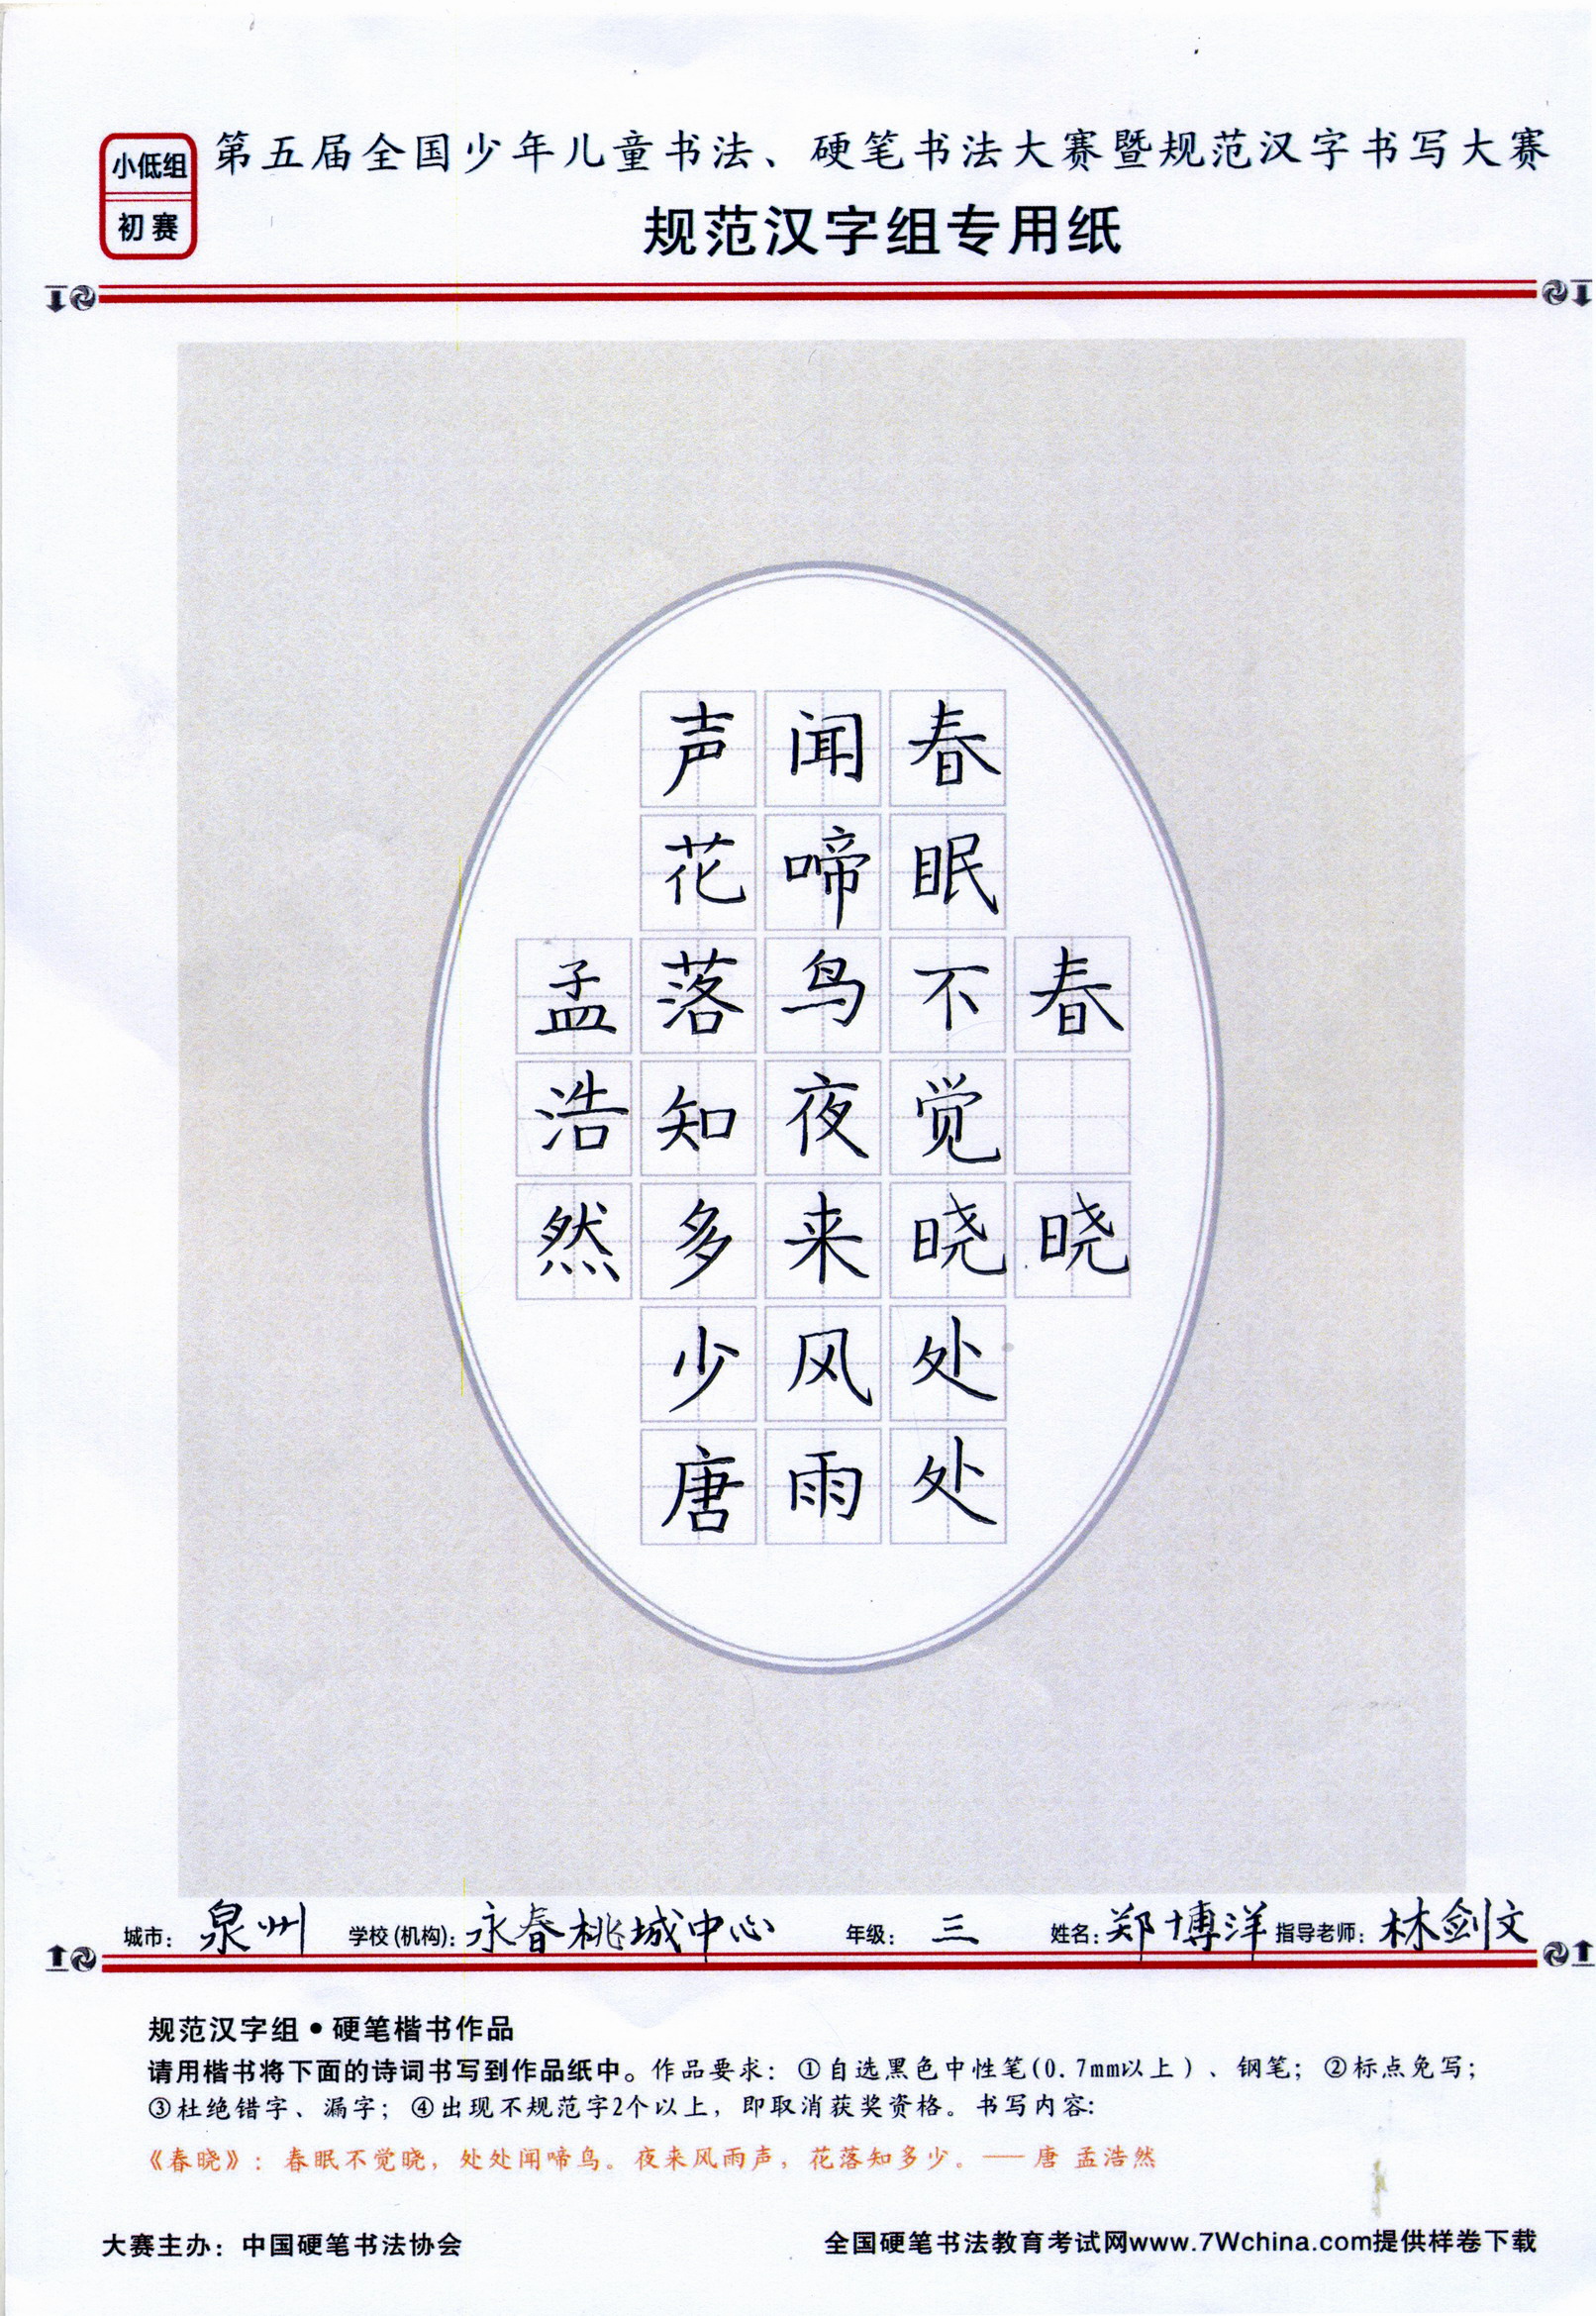 小低组
初赛
第五届全国少年儿童书法、硬笔书法大赛暨规范汉字书写大赛
规范汉字组专用纸
春晓
春眠不觉晓处处
闻啼鸟夜来风雨
声花落知多少唐
孟浩然
城市：泉州 学校(机构)：永春桃城中心 年级：三 姓名：郑博洋 指导老师：林剑文
规范汉字组•硬笔楷书作品
请用楷书将下面的诗词书写到作品纸中。作品要求：①自选黑色中性笔(0.7mm以上)、钢笔；②标点免写；
③杜绝错字、漏字；④出现不规范字2个以上，即取消获奖资格。书写内容：
《春晓》：春眠不觉晓，处处闻啼鸟。夜来风雨声，花落知多少。——唐 孟浩然
大赛主办：中国硬笔书法协会
全国硬笔书法教育考试网www.7Wchina.com提供样卷下载